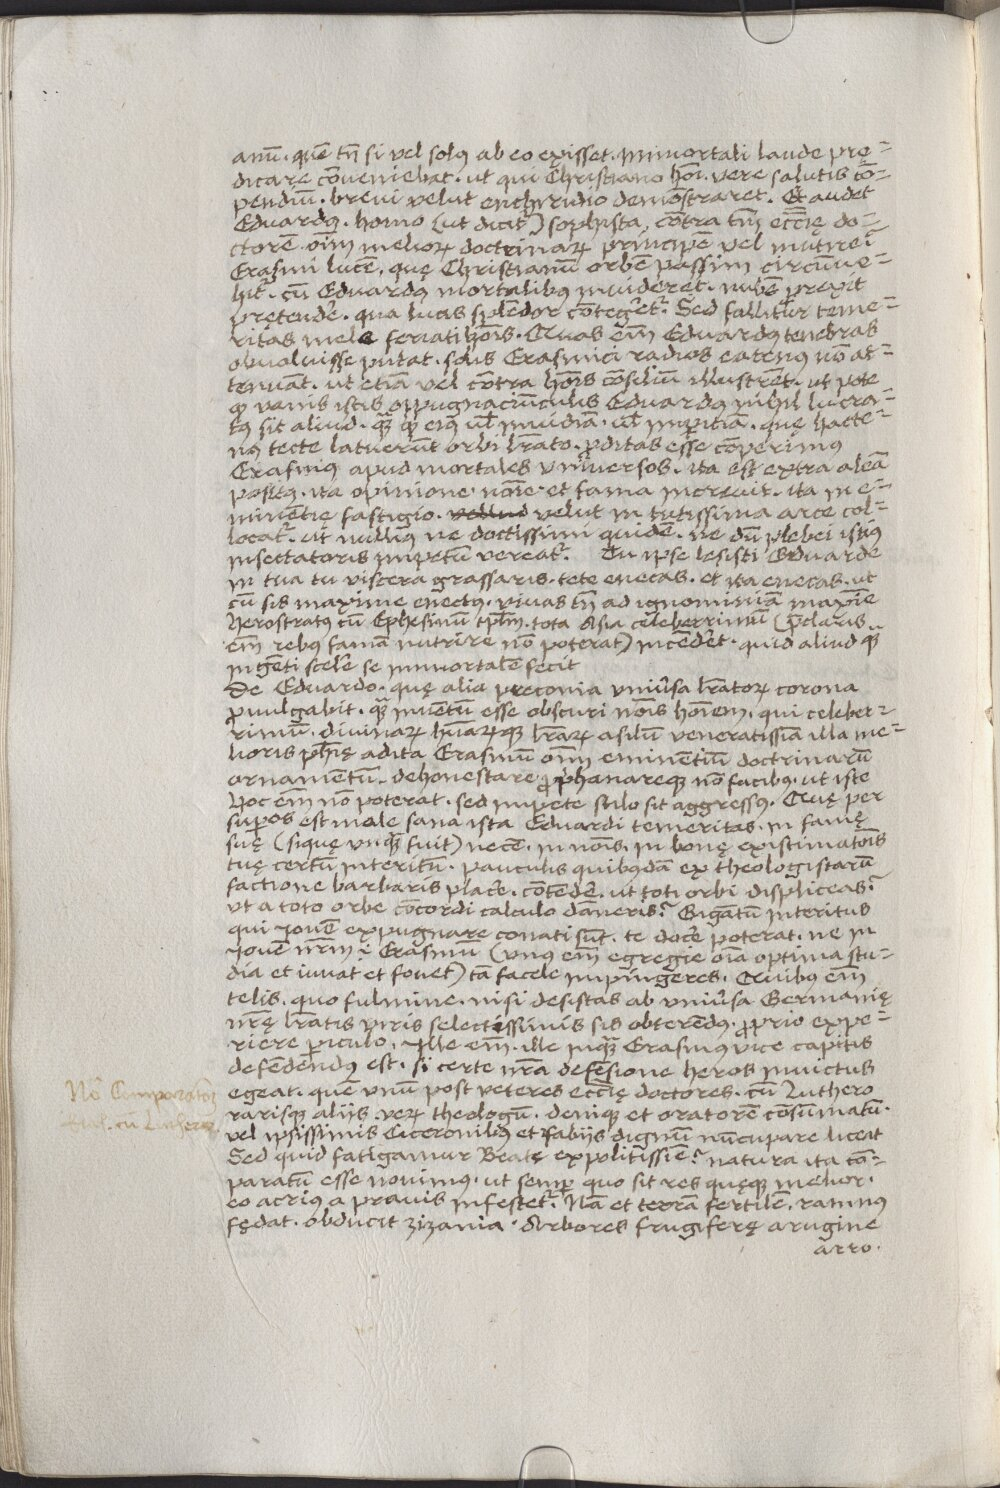 anū. quē tn̄ si vel solꝰ ab eo exisset. Immortali laude prę=
dicare cōveniebat. ut qui Christiano hoī. vere salutis cō=
pendiū. brevi velut enchyridio demōstraret. Et audet
Eduardꝰ. homo (ut dicit) sophista, cōtra tm̄ ecc̄ię do=
ctorē oīm̄ melioꝝ doctrinaꝝ principē vel mutire?
Erasmi lucē. quę Christianū orbē passim circūve=
hit. cū Eduardꝰ mortalibꝰ invideret. nubē p̄texit
prętendēs. qua lucis splēdor cōtegēt. Sed fallitur teme=
ritas mele feriati hoīs. Quas eīm Eduardꝰ tenebras
obvoluisse putat. solis Erasmici radios eatenꝰ nō at=
tenuāt. ut etiā vel cōtra hoīs cōsiliū illustrēt. ut pote
qꝫ vanis istis oppugnaciūculis Eduardꝰ nihil lucra=
tꝰ sit aliud. quā qꝫ eiꝰ vł invidiā. vł impiciā. quę hacte=
nꝰ tecte latuerūt orbi lr̄ato. ꝓditas esse cōperimꝰ
Erasmus apud mortales vniversos. ita est extra aleā
positꝰ. ita opinione noīe et fama increvit. ita in e=
minētię fastigio. velut in tutissima arce col=
locat̄. ut nullius ne doctissimi quidē. ne dū plebei istius
insectatoris impetū vereat̄. Tu ipse lesisti Eduarde
in tua tu viscera grassaris. tete enecas. et ita enecas. ut
cū sis maxime enectꝰ. vivas tn̄ ad ignominiā maxīe
Herostratꝰ cū Ephesinū tp̄lm. tota Asia celeberrimū (p̄claris
em̄ rebꝰ famā nutrire nō poterat) incēdēt. quid aliud qꝫ
ingēti scelē se immortalē fecit
De Eduardo. quę alia preconia vniv̄sa lr̄atoꝝ corona
ꝓmulgabit. quā inuētū esse obscuri noīs hoīem. qui celeber=
rimū. divinaꝝ huānaꝝqꝫ lr̄aꝝ asilū veneratissiā illa me=
lioris ph̄ię adita Erasmū oīm eminentiū doctrinarū
ornamentū. dehonestare ꝓphanareqꝫ nō facibꝰ. ut iste
hoc em̄ nō poterat. sed impete stilo sit aggressꝰ. Quę per
superos est male sana ista Eduardi temeritas. in famę
suę (siquę vnqꝫ fuit) necē. in noīs. in bonę existimatōis
tuę certū interitū. pauculis quibꝰdā ex theologistarū
factione barbaris placē. cōtendē. ut toti orbi displiceas?
vt a toto orbe cōcordi calculo dāneris? Gigātū interitus
qui Jovē expugnare conati sūt. te docē poterat. ne in
Jovē nr̄m i Erasmū (vnus em̄ egregie oīa optima stu=
dia et iuvat et fovet) tā facele impingeres. Quibꝰ em̄
telis. quo fulmine. nisi desistas ab vniv̄sa Germanię
nr̄ę lr̄atis viris selectissimis sis obterēdꝰ. ꝓprio expe=
riere piculo. Ille em̄. ille inqꝫ Erasmꝰ vice capitis
defendendꝰ est. si certe nr̄a defēsione heros invictus
egeat. quē vnū post veteres ecc̄ię doctores. cū Luthero
rarisqꝫ aliis. veꝝ theologū. deniqꝫ et oratorē cōsumatū.
vel ipsissimis Ciceronibꝰ et fabiis dignū nūcupare liceat
Sed quid fatigamur Beatę expolitissīe? natura ita cō=
paratū esse novimꝰ. ut semp quo sit res quęqꝫ melior.
eo acriꝰ a pravis infestet̄. Nā et terrā fertilē. ramnus
fędat. obducit zizania. Arbores frugiferę arugine
arro.
Nō Comparatōꝫ
cū Luthero